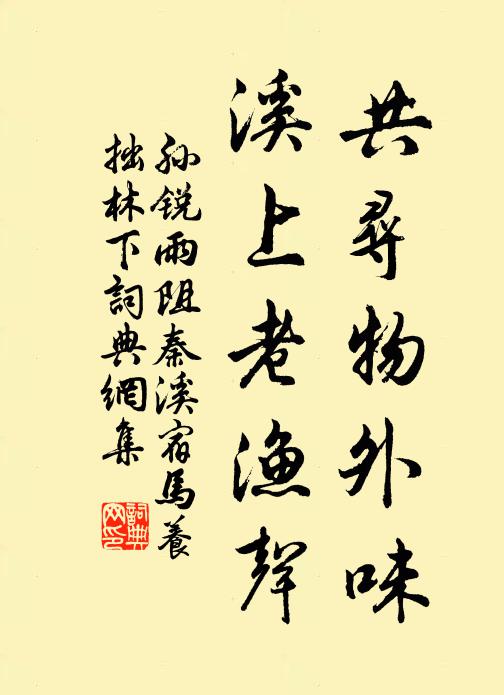 共尋物外味
溪上老漁聲
孙銳雨阻秦溪宿馬養
拙林下詞典網集
詞典网印